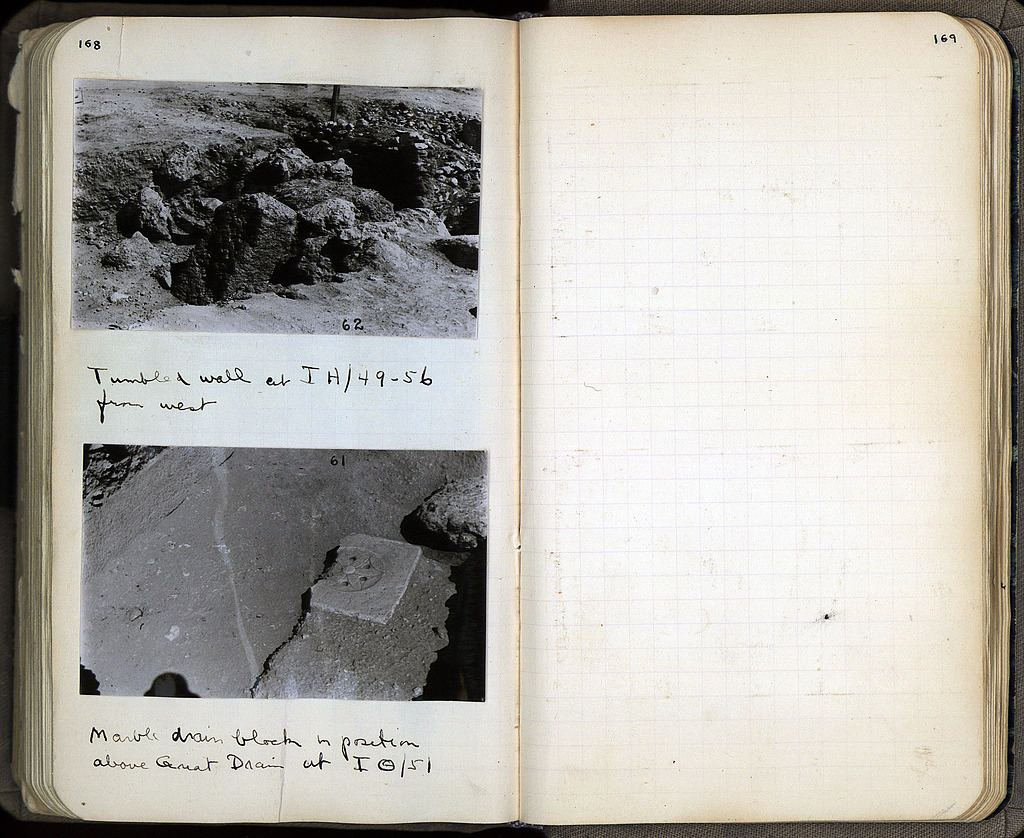 168
62
Tumbled wall at I H/49-56
from west
61
Marble drain block in position
above Great Drain at I Θ/51
169